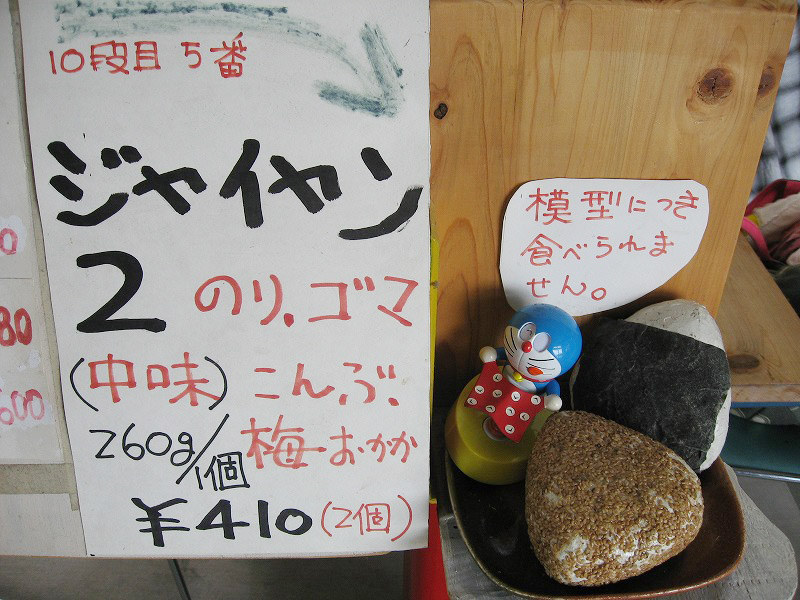 10段目 5番
ジャイヤン
2 のり.ゴマ
(中味) こんぶ.
260g/1個 梅 おかか
¥410(2個)
模型につき
食べられま
せん。
0
80
600